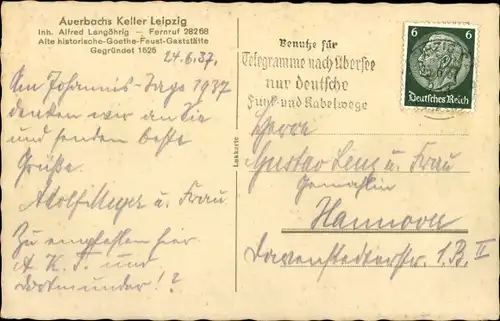 Auerbachs Keller Leipzig
Inh. Alfred Langöhrig — Fernruf 28268
Alte historische-Goethe-Faust-Gaststätte
Gegründet 1525
24.6.37.
Am Johannis-Tage 1937
denken wir an Sie
und senden beste
Grüße.
Adolf Meyer u. Frau.
Zu empfehlen hier
A. K. J. und
Dortmunder!?
Benutze für
Telegramme nach Übersee
nur deutsche
Funk- und Kabelwege
6 6
Deutsches Reich
Herrn
Gustav Lenz u. Frau
Gemahlin
Hannover
1.B. II